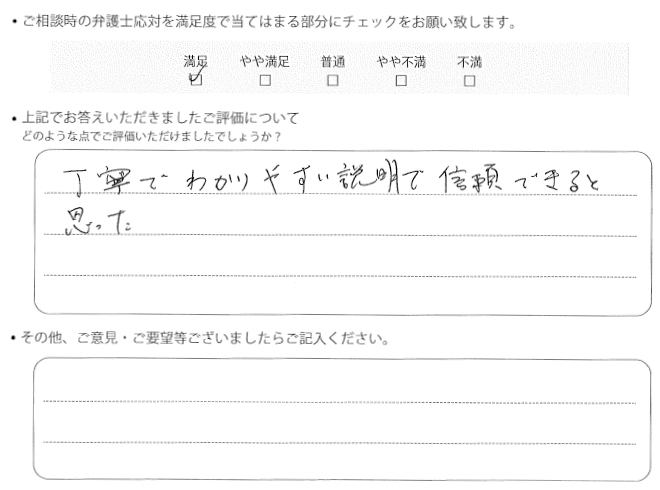 • ご相談時の弁護士応対を満足度で当てはまる部分にチェックをお願い致します。
満足 やや満足 普通 やや不満 不満
☑ □ □ □ □
• 上記でお答えいただきましたご評価について
どのような点でご評価いただけましたでしょうか？
丁寧でわかりやすい説明で信頼できると
思った
• その他、ご意見・ご要望等ございましたらご記入ください。